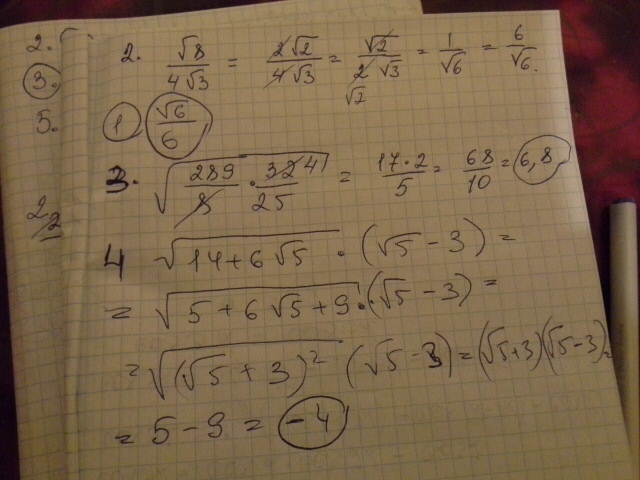 2. √
3.
5.
2/2
2. √8/(4√3) = 2√2/(4√3) = √2/(2√3) = 1/√6 = 6/√6.
√2
1 √6/6
3. √(289/8 · 324/25) = 17·2/5 = 68/10 = 6,8
4 √(14+6√5) · (√5 - 3) =
= √(5+6√5+9) · (√5 - 3) =
= √((√5 + 3)²) (√5 - 3) = (√5+3)(√5-3) =
= 5 - 9 = -4